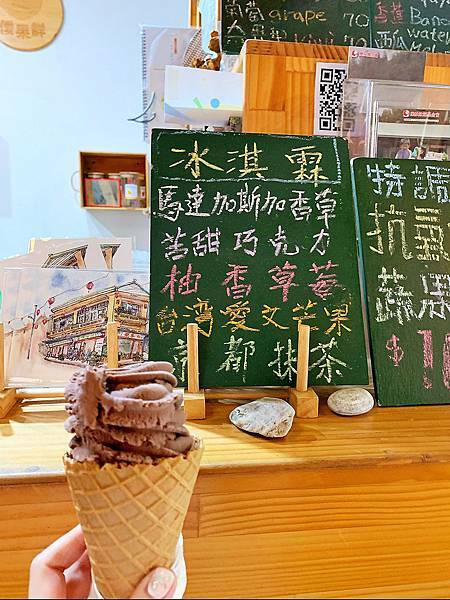 樓果鮮
葡萄 grape 70
冰淇霖
馬達加斯加香草
苦甜巧克力
柚香草莓
台湾愛文芒果
京都抹茶
香蕉
西瓜 water
特調
蔬果
$1